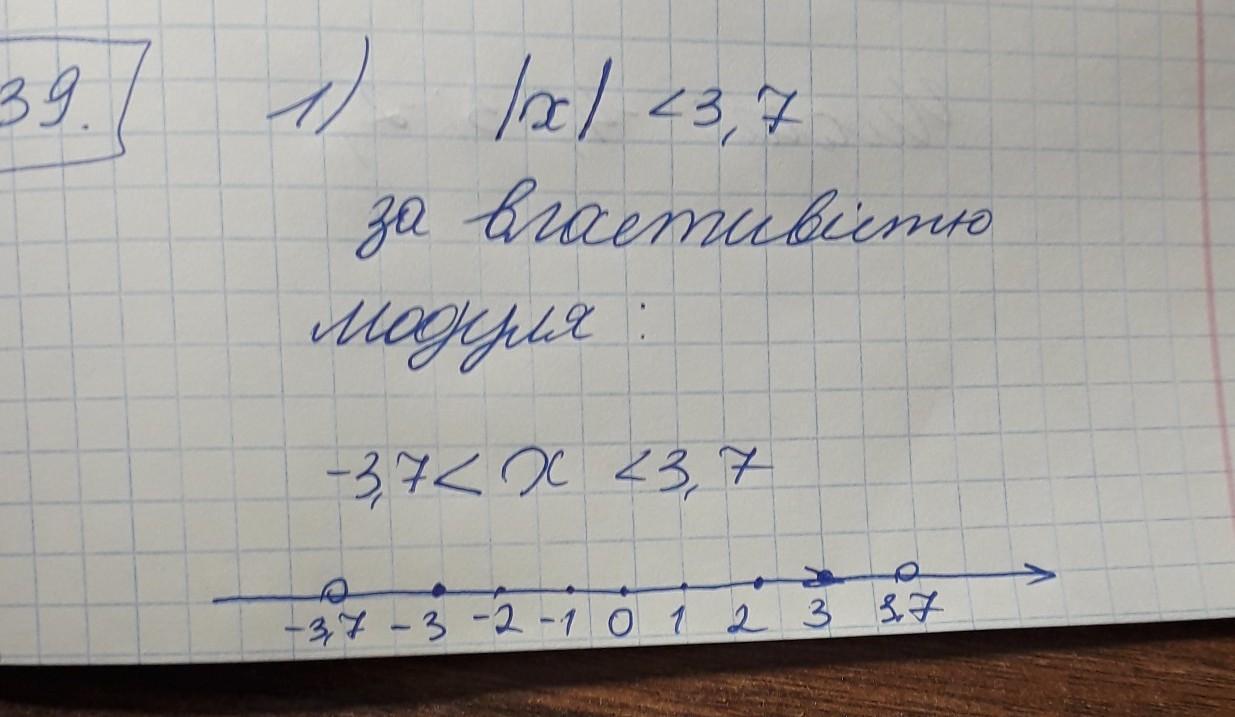 39. 1) |x| < 3,7
за властивістю
модуля :
-3,7 < x < 3,7
-3,7 -3 -2 -1 0 1 2 3 3,7